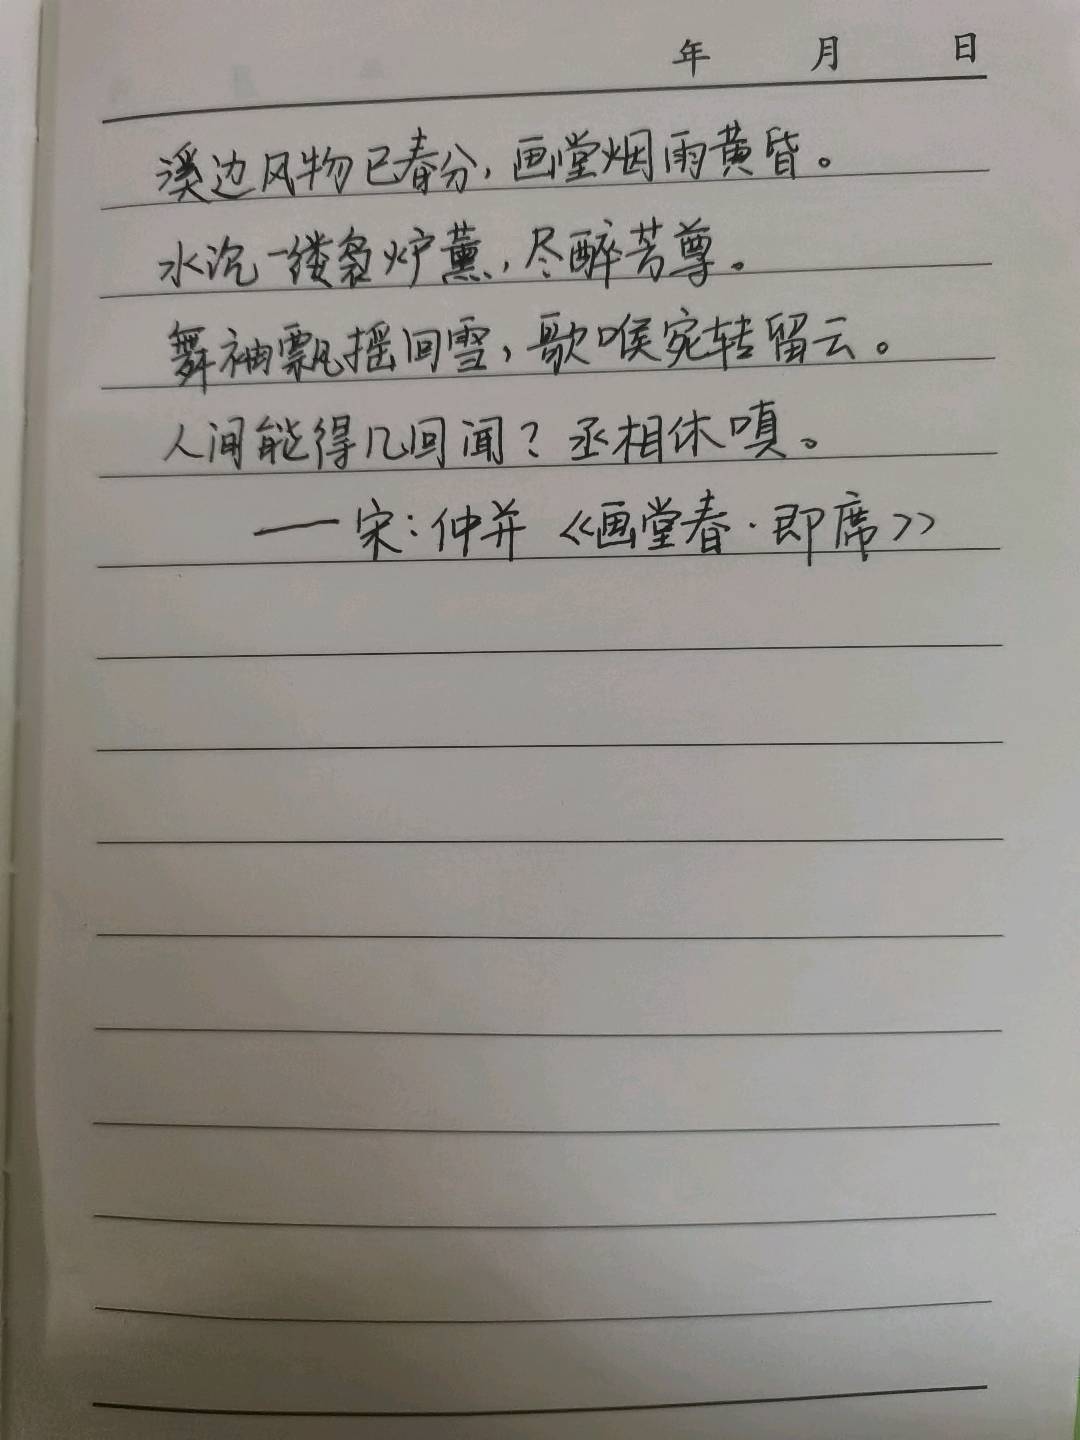 年 月 日
溪边风物已春分，画堂烟雨黄昏。
水沉一缕袅炉薰，尽醉芳尊。
舞袖飘摇回雪，歌喉宛转留云。
人间能得几回闻？丞相休嗔。
——宋：仲并《画堂春·即席》